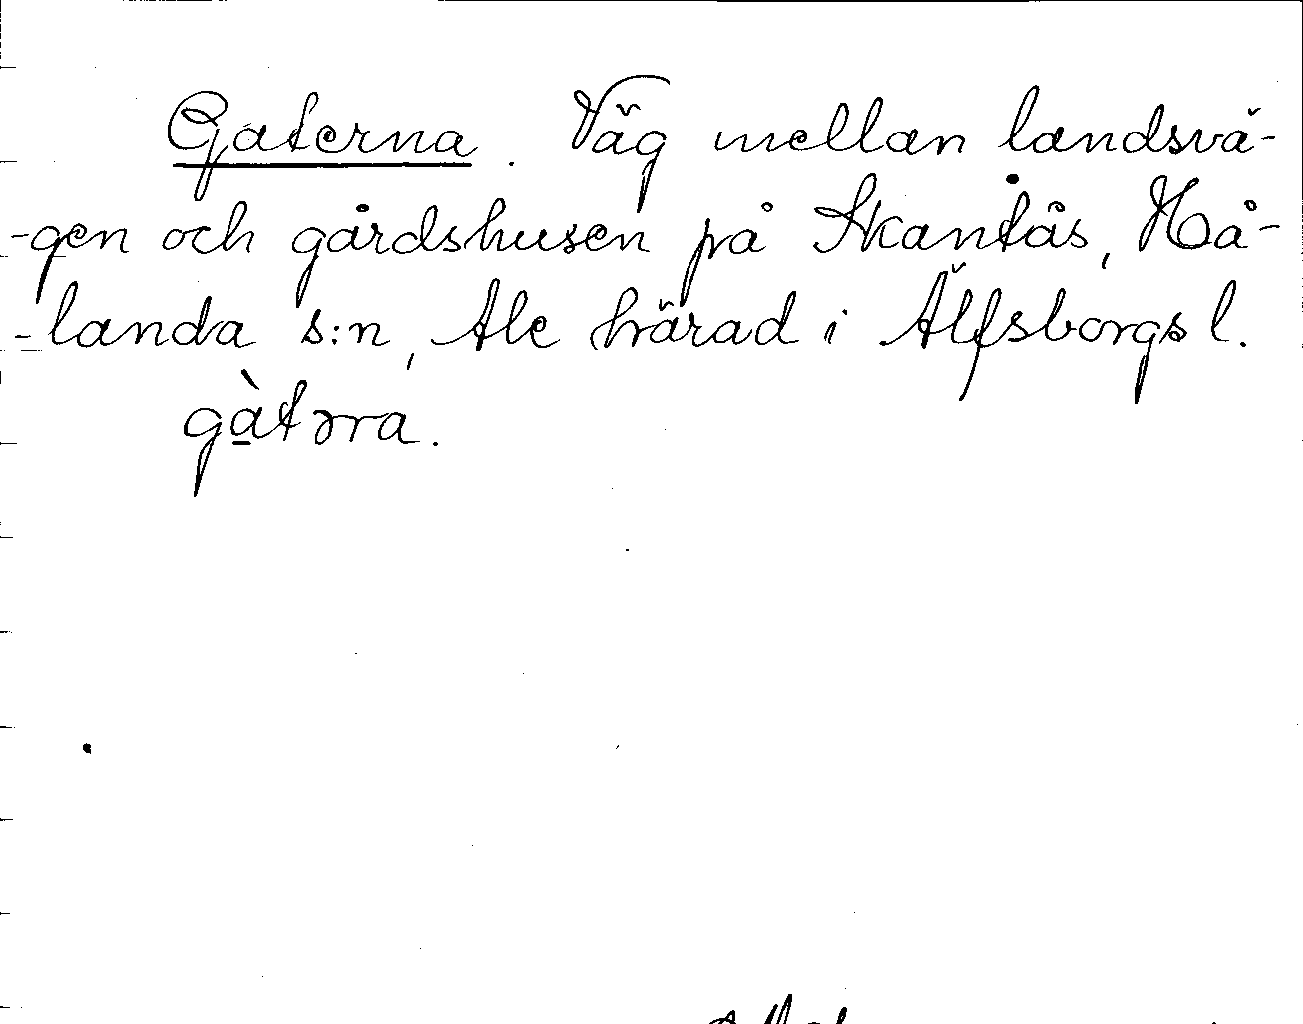 Gaterna. Väg mellan landsvä-
-gen och gårdshusen på Skantås, Hå-
-landa s:n, Ale härad i Älfsborgs l.
gàtərra.